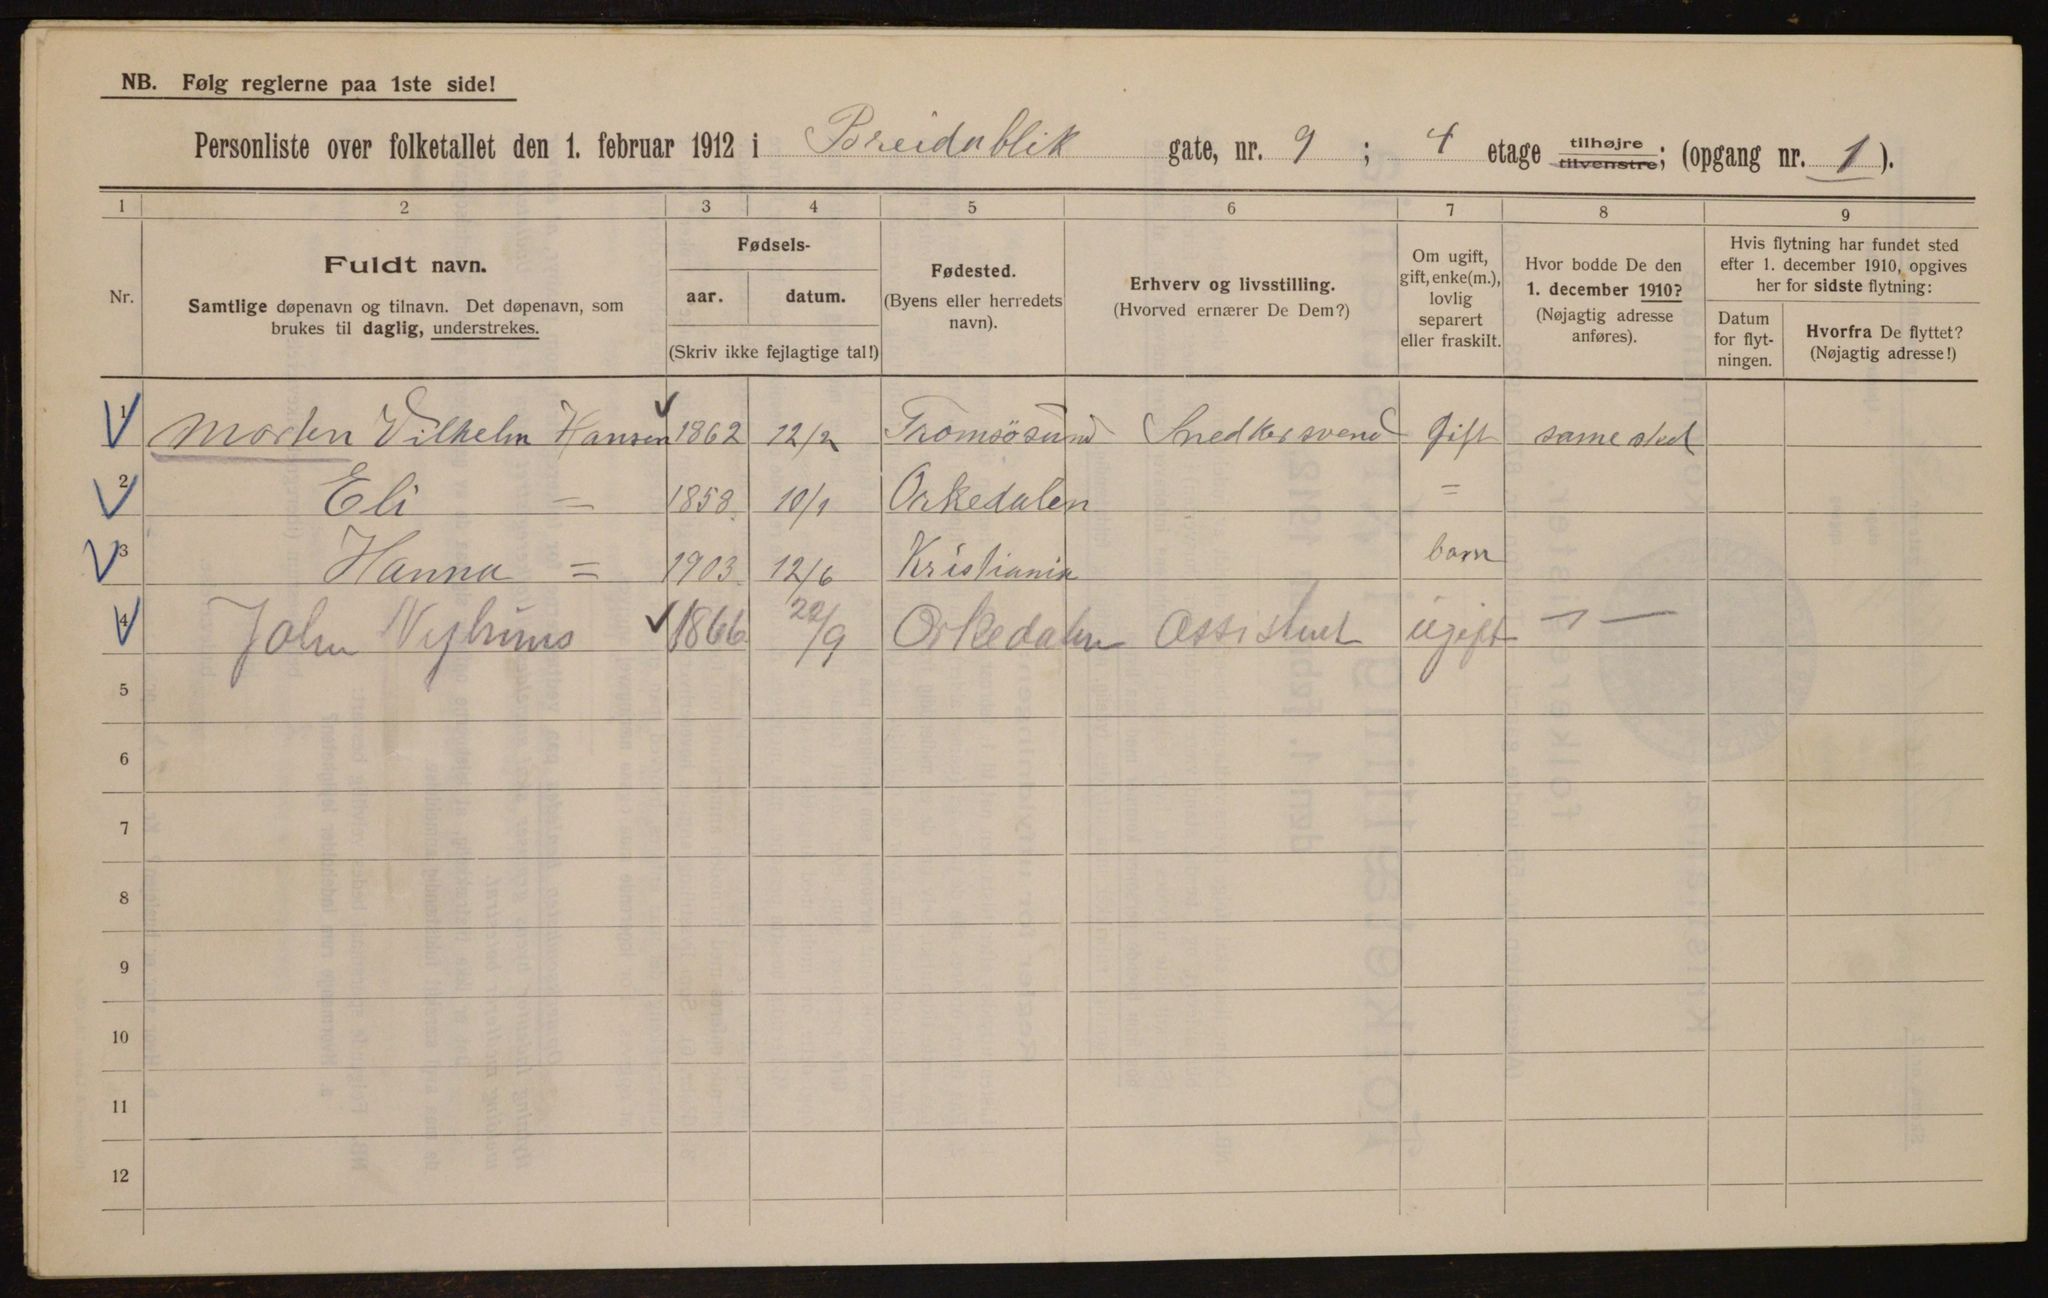 NB. Følg reglerne paa 1ste side!
Personliste over folketallet den 1. februar 1912 i Breidablik gate, nr. 9 ; 4 etage tilhøjre tilvenstre; (opgang nr. 1 ).
1 2 3 4 5 6 7 8 9
Nr.
Fuldt navn.
Samtlige døpenavn og tilnavn. Det døpenavn, som
brukes til daglig, understrekes.
Fødsels-
aar. datum.
(Skriv ikke fejlagtige tal!)
Fødested.
(Byens eller herredets
navn).
Erhverv og livsstilling.
(Hvorved ernærer De Dem?)
Om ugift,
gift, enke(m.),
lovlig
separert
eller fraskilt.
Hvor bodde De den
1. december 1910?
(Nøjagtig adresse
anføres).
Hvis flytning har fundet sted
efter 1. december 1910, opgives
her for sidste flytning:
Datum
for flyt-
ningen.
Hvorfra De flyttet?
(Nøjagtig adresse!)
1 Morten Vilhelm Hansen 1862 12/2 Tromsösund Snedkersvend Gift same sted
2 Eli = 1858 10/1 Orkedalen =
3 Hanna = 1903 12/6 Kristiania barn
4 John 1866 22/9 Orkedalen Assistent ugift — —
5
6
7
8
9
10
11
12